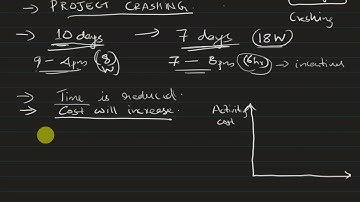 → PROJECT CRASHING.
Crashing
→ 10 days → 7 days (18W)
9 - 4pm (8W) 7 - 8pm (6hr) → incentives
→ Time is reduced.
→ Cost will increase.
Activity cost